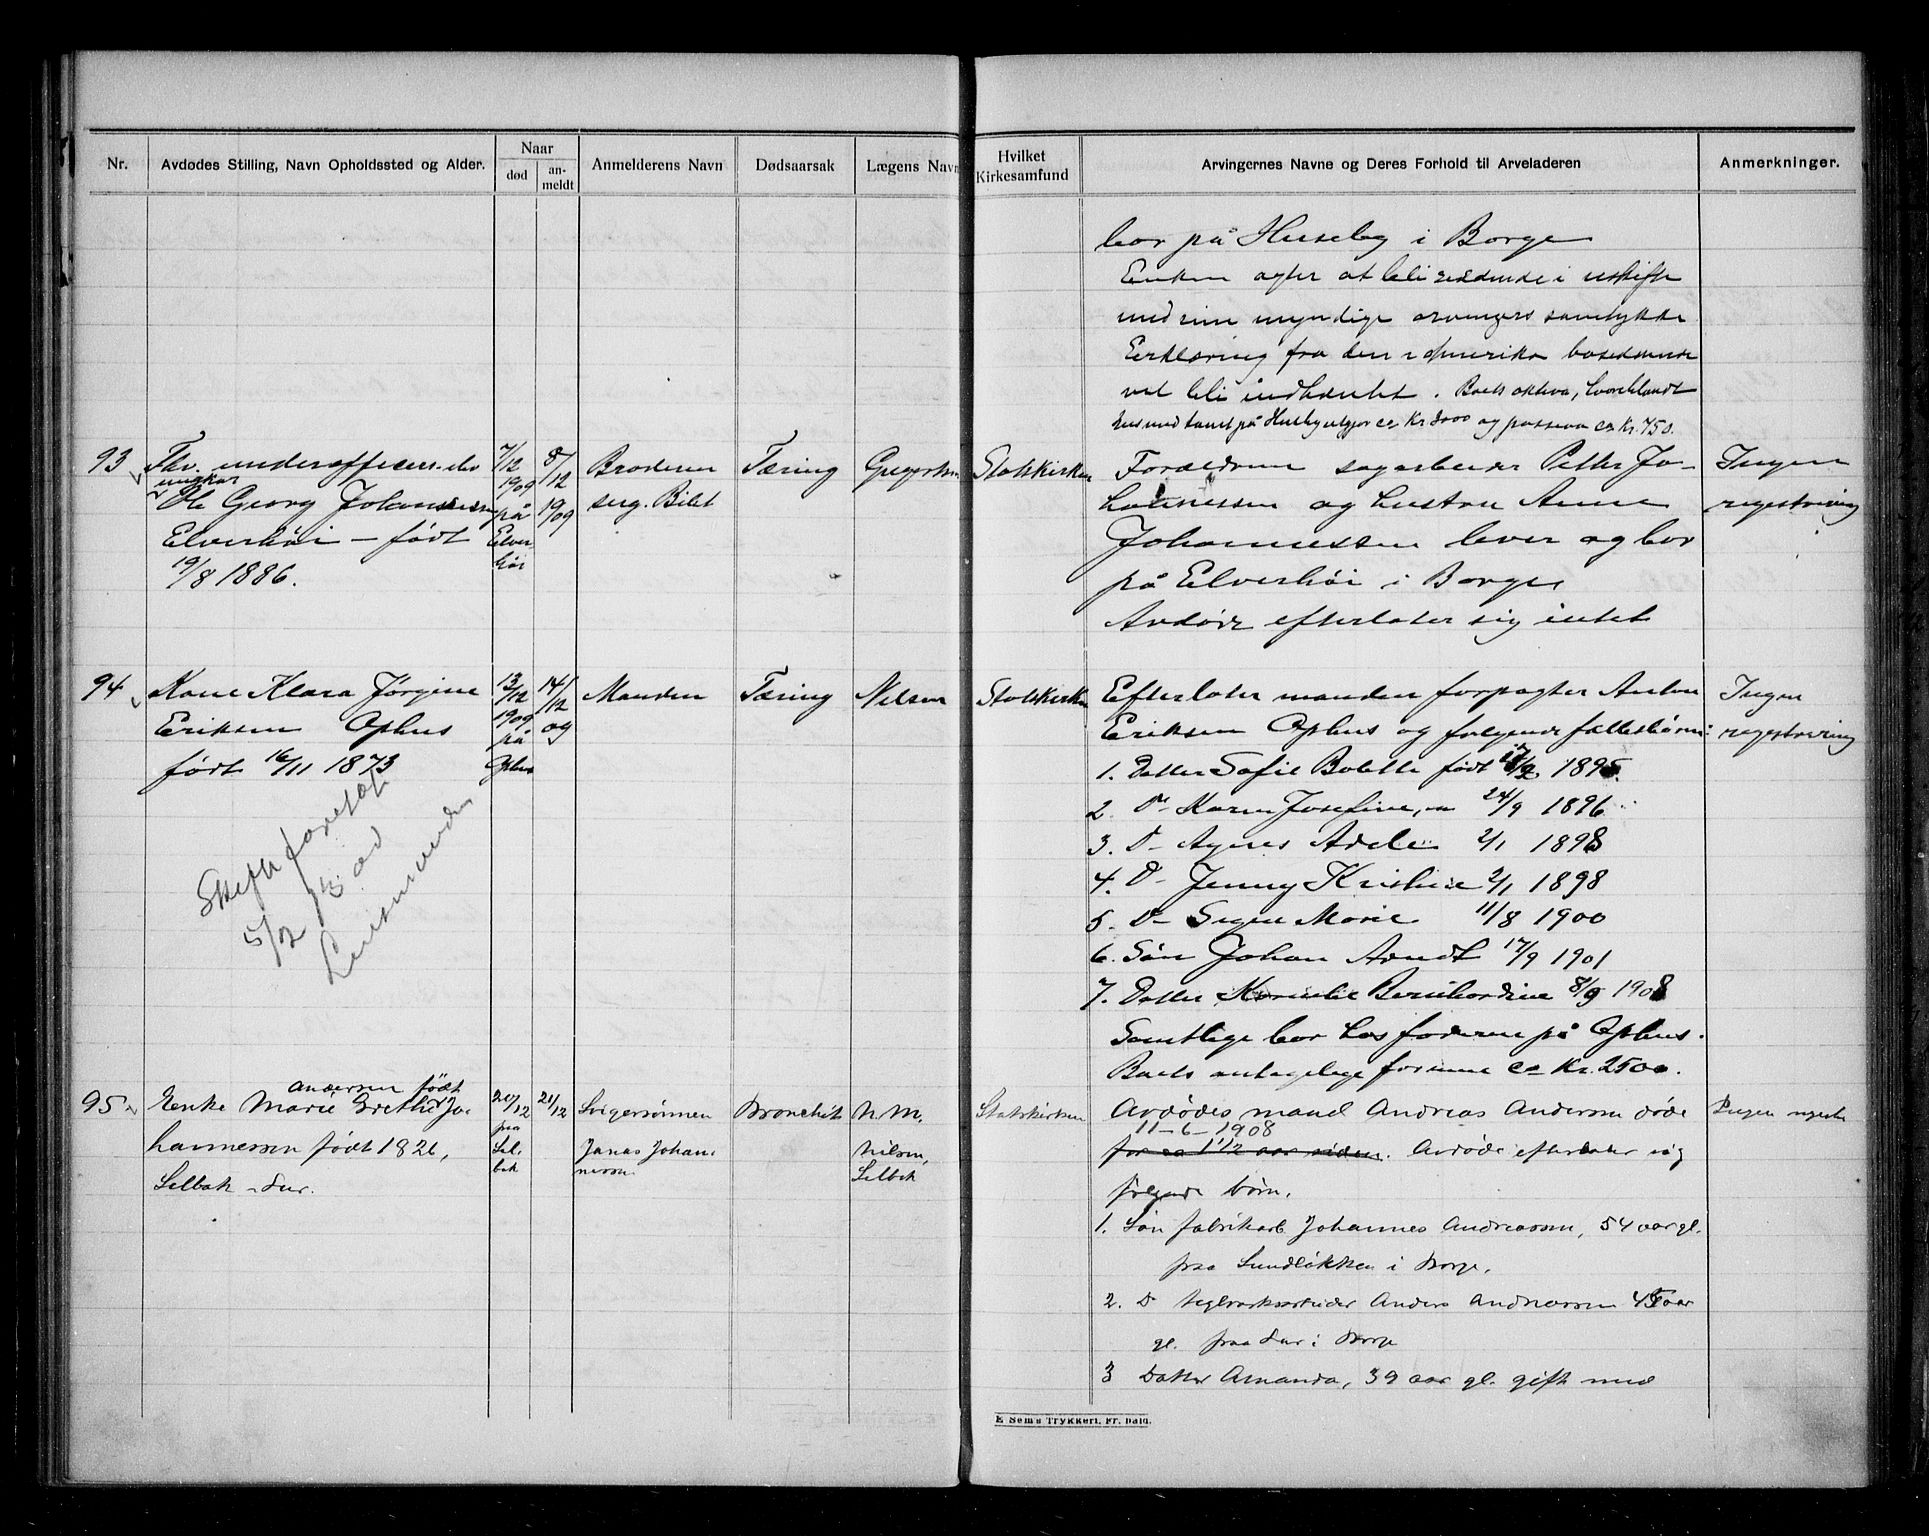 Nr.
Avdødes Stilling, Navn Opholdssted og Alder.
Naar
død
an-
meldt
Anmelderens Navn
Dødsaarsak
Lægens Navn
Hvilket
Kirkesamfund
Arvingernes Navne og Deres Forhold til Arveladeren
Anmerkninger.
bor på Huseby i Borge
Enken agter at bli siddende i uskifte
med sine myndige arvingers samtykke
Erklæring fra den i Amerika bosiddende
vil bli indhentet. Boets aktiva, hvoriblandt
hus med tomt på Huseby utgjør ca Kr. 3000 og passiva ca Kr. 750.
93
Fhv. underofficers elev
ungkar
Ole Georg Johannessen
Elverhøi – født
19/8 1886.
7/12
1909
på
Elver-
høi
8/12
1909
Broderen
serg. Bilet
Tæring
Gregersen
Statskirken
Forældrene sagarbeider Petter Jo-
hannessen og hustru Anne
Johannessen lever og bor
på Elverhøi i Borge
Avdøde efterlater sig intet
Ingen
registrering
94
Kone Klara Jørgine
Eriksen Ophus
født 16/11 1873
13/12
1909
på
Ophus
14/12
09
Manden
Tæring
Nilsen
Statskirken
Efterlater manden forpagter Anton
Eriksen Ophus og følgende fællesbørn:
1. Datter Sofie Bolette født 1895.
2. D- Karen Josefine, 24/9 1896
3. D- Agnes Adele 2/1 1898
4. D- Jenny Kristine 2/1 1898
5. D- Signe Marie 11/8 1900
6. Søn Johan Arndt 17/9 1901
7. Datter Kornelie Bernhardine 8/9 1908
Samtlige bor hos faderen på Ophus.
Boets antagelige formue ca Kr. 2500.
Ingen
registrering
Skifte foretat
5/2 ad
Lensmanden
95
Andersen født
Enke Marie Grethe Jo-
hannessen født 1826,
Lilbak - Lur.
20/12
paa
Sel-
bak
21/12
Svigersønnen
Jonas Johan-
nessen
Bronchit
N. M.
Nilsen,
Selbak
Statskirken
Avdødes mand Andreas Andersen døde
11-6-1908
for ca 1 1/2 aar siden. Avdøde efterlater sig
følgende børn.
1. Søn fabrikarb. Johannes Andreassen, 54 aar gl.
fraa Sundløkken i Borge.
2. D teglverksarbeider Anders Andreassen 45 aar
gl. fraa Lur i Borge
3 Datter Amanda, 39 aar gl. gift med
Ingen registr
E Sem's Trykkeri, Fr. hald.